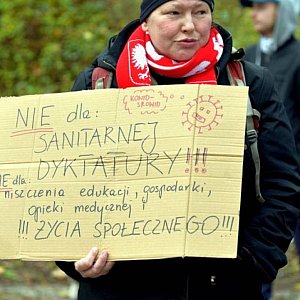 KOWID-
SROWID
NIE dla:
SANITARNEJ
DYKTATURY!!!
NIE dla:
niszczenia edukacji, gospodarki,
opieki medycznej i
!!! ŻYCIA SPOŁECZNEGO!!!